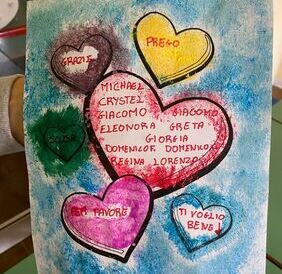 GRAZIE
PREGO
MICHAEL
CRYSTEL
GIACOMO GIACOMO
ELEONORA GRETA
GIORGIA
DOMENICOR DOMENICO
REGINA LORENZO
SCUSA
PER FAVORE
TI VOGLIO
BENE!